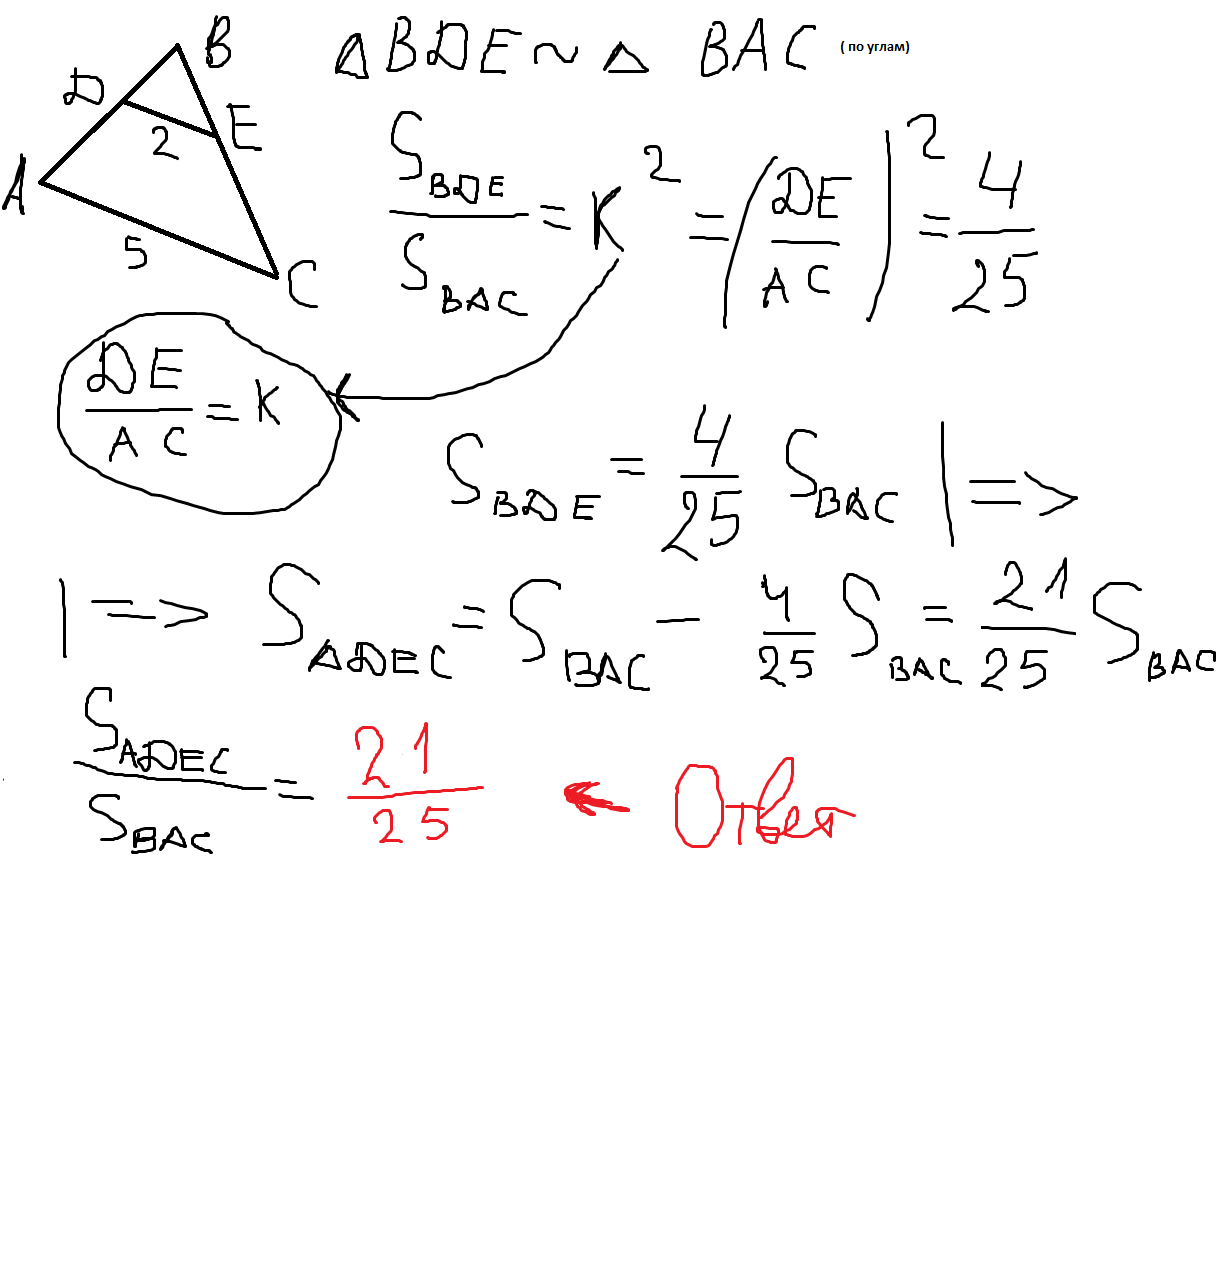 B
D
E
2
A
5
C
△BDE ~ △ BAC ( по углам)
S_BDE / S_BAC = K² = (DE / AC)² = 4/25
DE / AC = K
S_BDE = 4/25 S_BAC | =>
| => S_ADEC = S_BAC - 4/25 S_BAC = 21/25 S_BAC
S_ADEC / S_BAC = 21/25 ← Ответ